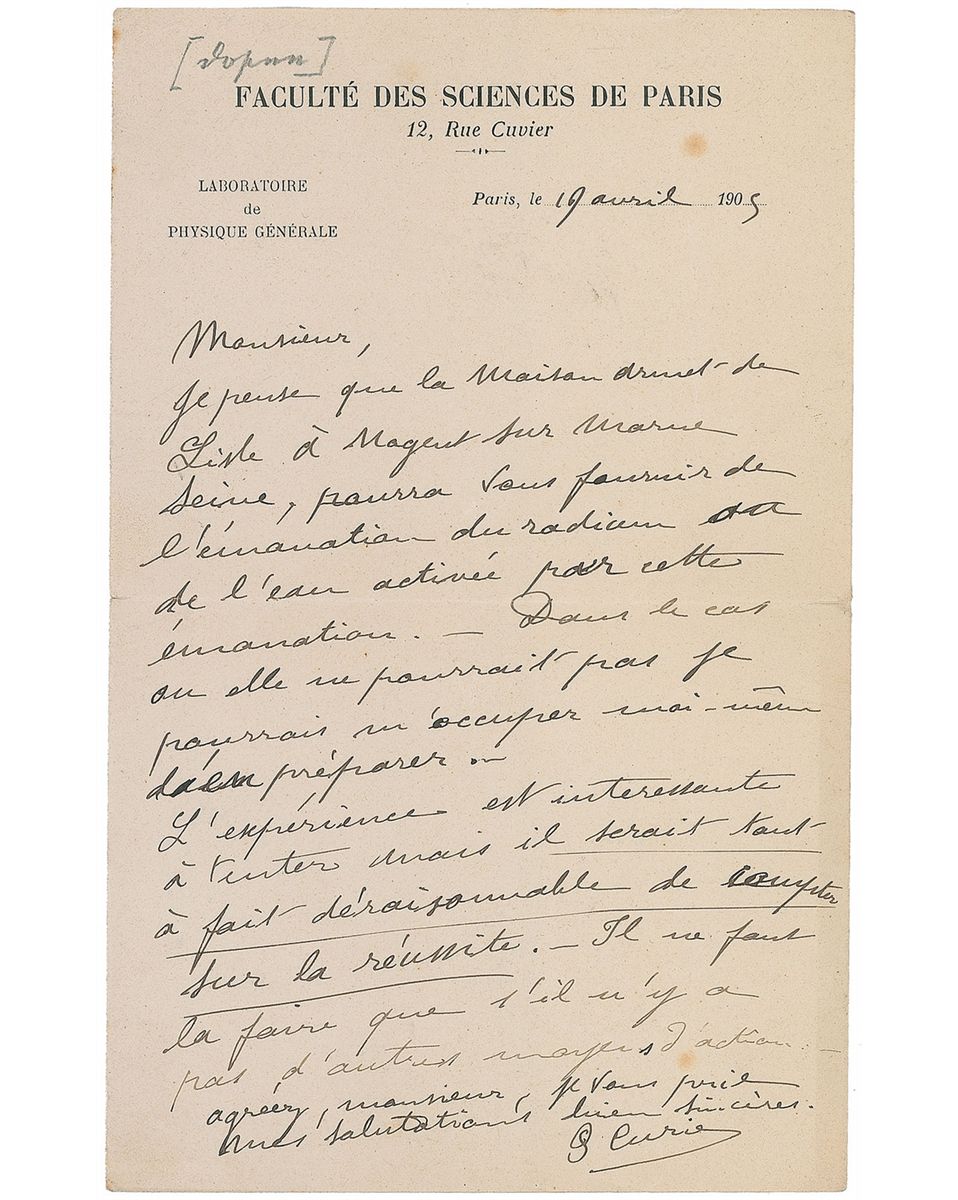 FACULTÉ DES SCIENCES DE PARIS
12, Rue Cuvier
LABORATOIRE
de
PHYSIQUE GÉNÉRALE
Paris, le 19 avril 1905
Monsieur,
Je pense que la Maison armet de
Lisle à Nogent sur Marne
Seine, pourra vous fournir de
l'émanation du radium ou
de l'eau activée par cette
émanation. — Dans le cas
ou elle ne pourrait pas je
pourrais m'occuper moi-même
d'en préparer. —
L'expérience est interessante
à tenter mais il serait tout
à fait déraisonnable de compter
sur la réussite. — Il ne faut
la faire que s'il n'y a
pas d'autres moyens d'action. —
agréez, monsieur, je vous prie
mes salutations bien sincères.
P Curie